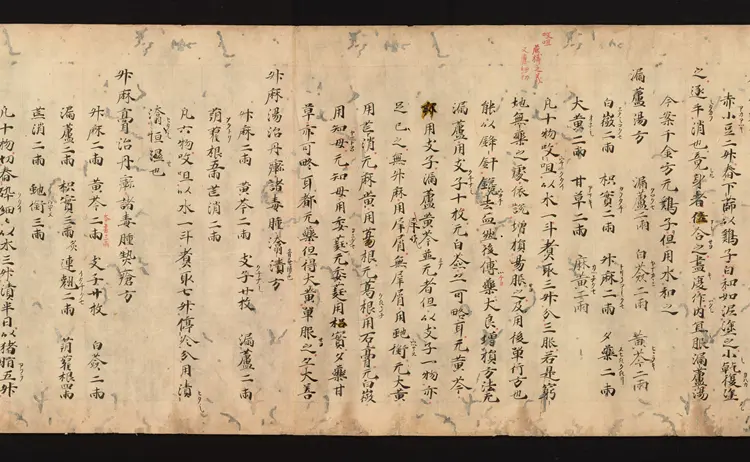 赤小豆二升舂下篩以鷄子白和如泥塗之小乾復塗
之逐手消也竟身者倍合之盡復作内宜服漏蘆湯
今案千金方无鷄子但用水和之
漏蘆湯方 漏蘆二兩 白蘞二兩 黄芩二兩
白薇二兩 枳實二兩 升麻二兩 夕藥二兩
大黄二兩 甘草二兩 麻黄二兩
㕮咀
凡十物㕮咀以水一斗煮取三升分三服若是窮
地無藥之處依説増損易服之及用後單行方也
能以鋒針鑱去血然後傅藥大良増損方法无
漏蘆用支子十枚无白蘞亦可略耳无黄芩
用支子漏蘆黄芩並无者但以支子一物亦
足已之無升麻用犀屑無犀屑用虵衡无大黄
用芒消无麻黄用葛根无葛根用石膏无白薇
用知母无知母用委蕤无委蕤用枳實夕藥甘
草亦可略耳都无藥但得大黄單服之亦大善
升麻湯治丹疹諸毒腫溻漬方
升麻二兩 黄芩二兩 支子廿枚 漏蘆二兩
蒴藋根五兩 芒消二兩
凡六物㕮咀以水一斗煮取七升停冷分用漬
溻恒濕也
升麻膏治丹疹諸毒腫熱瘡方
升麻二兩 黄芩二兩 支子廿枚 白蘞二兩
漏蘆二兩 枳實三兩炙 連翹二兩 蒴藋根四兩
芒消二兩 虵衡三兩
凡十物切舂碎細以水三升漬半日以猪脂五升